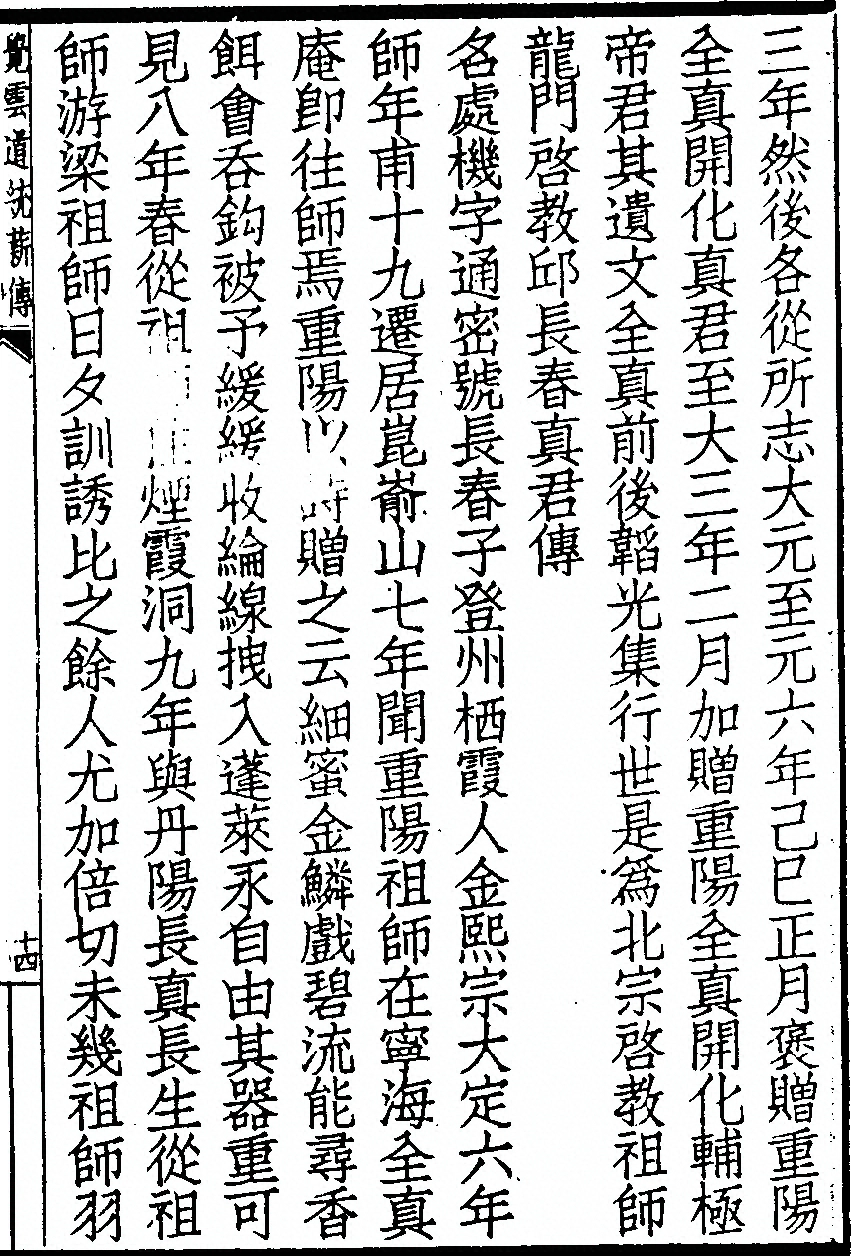 三年然後各從所志大元至元六年己巳正月褒贈重陽
全真開化真君至大三年二月加贈重陽全真開化輔極
帝君其遺文全真前後韜光集行世是爲北宗啓教祖師
龍門啓教邱長春真君傳
名處機字通密號長春子登州栖霞人金熙宗大定六年
師年甫十九遷居崑嵛山七年聞重陽祖師在寧海全真
庵卽往師焉重陽以詩贈之云細蜜金鱗戲碧流能尋香
餌會吞鈎被予緩緩收綸線拽入蓬萊永自由其器重可
見八年春從祖師住煙霞洞九年與丹陽長真長生從祖
師游梁祖師日夕訓誘比之餘人尤加倍切未幾祖師羽
覺雲道統薪傳
十四